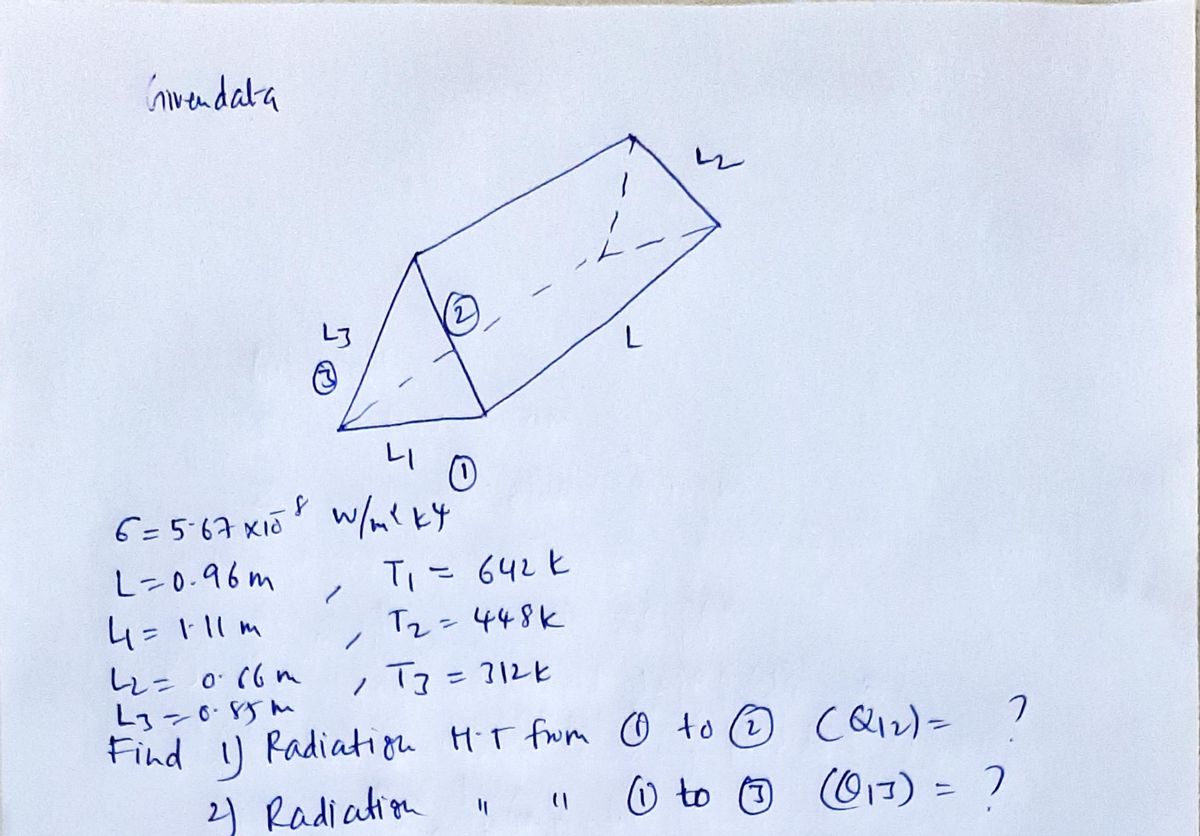 Given data
L2
L3
②
③
L
L1
①
σ = 5.67 x 10⁻⁸ W/m² K4
L = 0.96 m , T1 = 642 K
L1 = 1.11 m , T2 = 448 K
L2 = 0.66 m , T3 = 312 K
L3 = 0.85 m
Find 1) Radiation H.T from ① to ② (Q12) = ?
2) Radiation " " ① to ③ (Q13) = ?